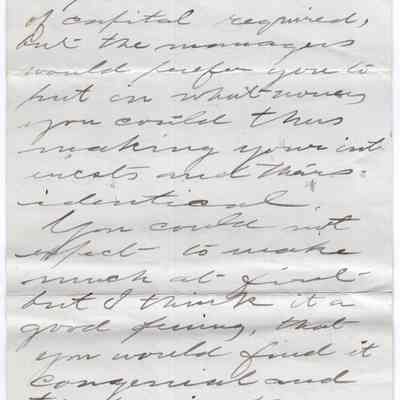 of capital required,
but the managers
would prefer you to
put in what money
you could thus
making your int
erests and theirs
identical.
You could not
expect to make
much at first
but I think it a
good, that
you would find it
congenial and